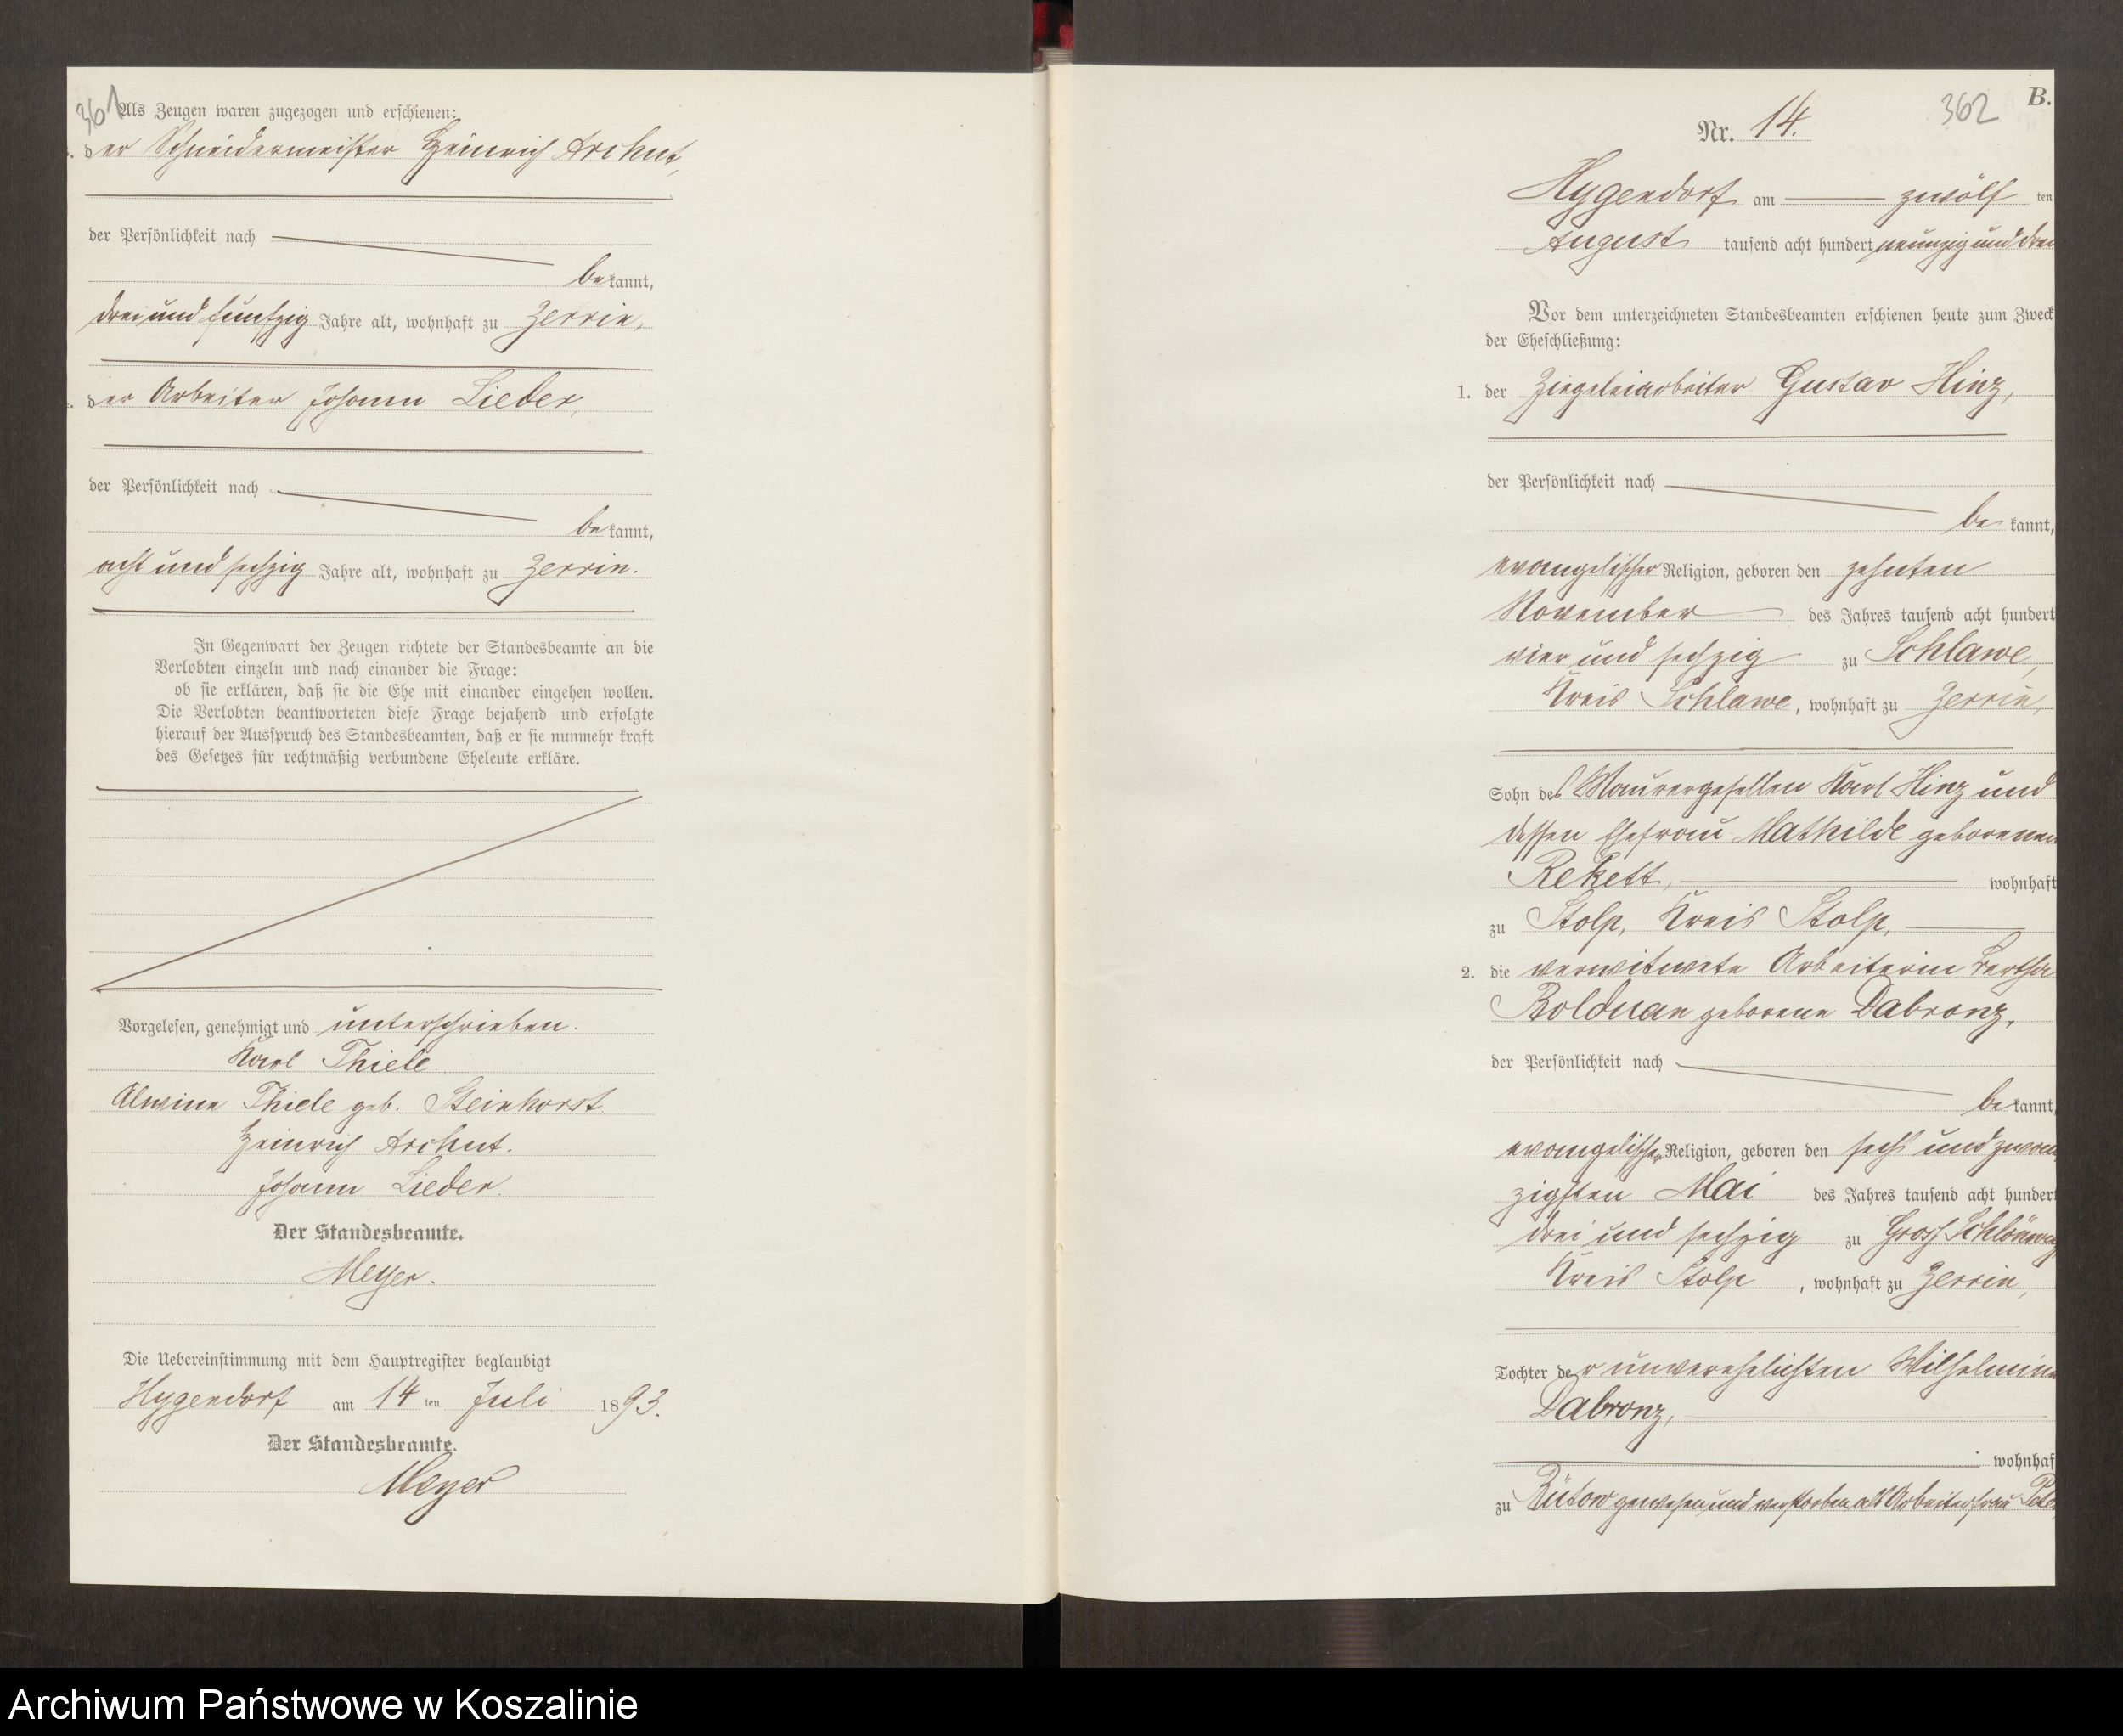 361
Als Zeugen waren zugezogen und erschienen:
der Schneidermeister Heinrich Archut,
der Persönlichkeit nach
bekannt,
drei und fünfzig Jahre alt, wohnhaft zu Zerrin,
der Arbeiter Johann Lieder,
der Persönlichkeit nach
bekannt,
acht und sechzig Jahre alt, wohnhaft zu Zerrin.
In Gegenwart der Zeugen richtete der Standesbeamte an die
Verlobten einzeln und nach einander die Frage:
ob sie erklären, daß sie die Ehe mit einander eingehen wollen.
Die Verlobten beantworteten diese Frage bejahend und erfolgte
hierauf der Ausspruch des Standesbeamten, daß er sie nunmehr kraft
des Gesetzes für rechtmäßig verbundene Eheleute erkläre.
Vorgelesen, genehmigt und unterschrieben.
Karl Thiele
Alwine Thiele geb. Steinhorst
Heinrich Archut.
Johann Lieder.
Der Standesbeamte.
Meyer.
Die Uebereinstimmung mit dem Hauptregister beglaubigt
Hygendorf am 14 ten Juli 1893.
Der Standesbeamte.
Meyer
B.
362
Nr. 14.
Hygendorf am zwölf ten
August tausend acht hundert neunzig und drei
Vor dem unterzeichneten Standesbeamten erschienen heute zum Zweck
der Eheschließung:
1. der Ziegeleiarbeiter Gustav Hinz,
der Persönlichkeit nach
bekannt,
evangelischer Religion, geboren den zehnten
November des Jahres tausend acht hundert
vier und sechzig zu Schlawe,
Kreis Schlawe, wohnhaft zu Zerrin,
Sohn des Maurergesellen Karl Hinz und
dessen Ehefrau Mathilde geborenen
Rekett, wohnhaft
zu Stolp, Kreis Stolp,
2. die verwitwete Arbeiterin Bertha
Bolduan geborene Dabronz,
der Persönlichkeit nach
bekannt,
evangelischer Religion, geboren den sechs und zwan
zigsten Mai des Jahres tausend acht hundert
drei und sechzig zu Gross
Kreis Stolp, wohnhaft zu Zerrin,
Tochter der unverehelichten Wilhelmine
Dabronz,
wohnhaf
zu Bütow gewesen und verstorben als Arbeiterfrau
Archiwum Państwowe w Koszalinie